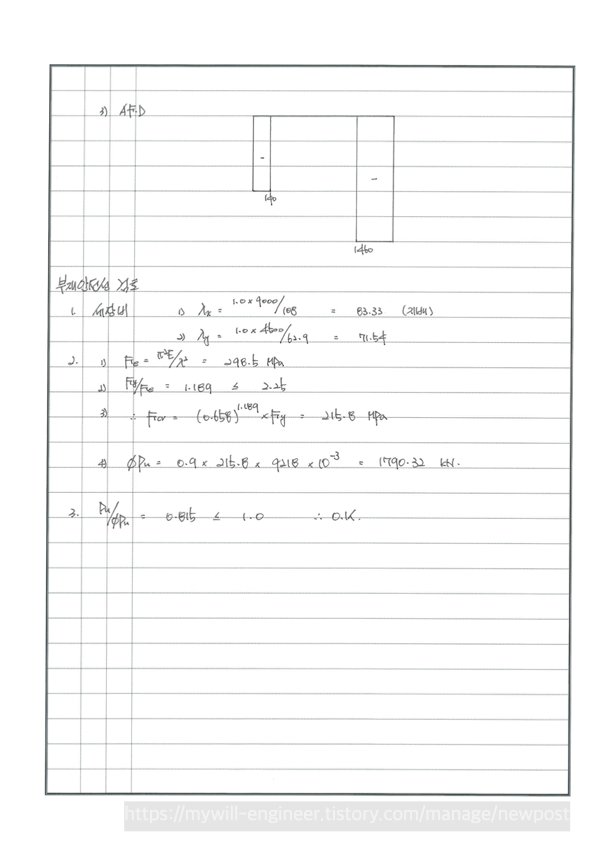 3) A.F.D
-
-
140
1460
부재안전성 검토
1. 세장비 1) λx = 1.0 x 9000/108 = 83.33 (지배)
2) λy = 1.0 x 4500/62.9 = 71.54
2. 1) Fe = π²E/λ² = 298.5 MPa
2) Fy/Fe = 1.189 ≤ 2.25
3) ∴ Fcr = (0.658)^1.189 x Fy = 215.8 MPa
4) φPn = 0.9 x 215.8 x 9218 x 10^-3 = 1790.32 kN.
3. Pu/φPn = 0.815 ≤ 1.0 ∴ O.K.
https://mywill-engineer.tistory.com/manage/newpost